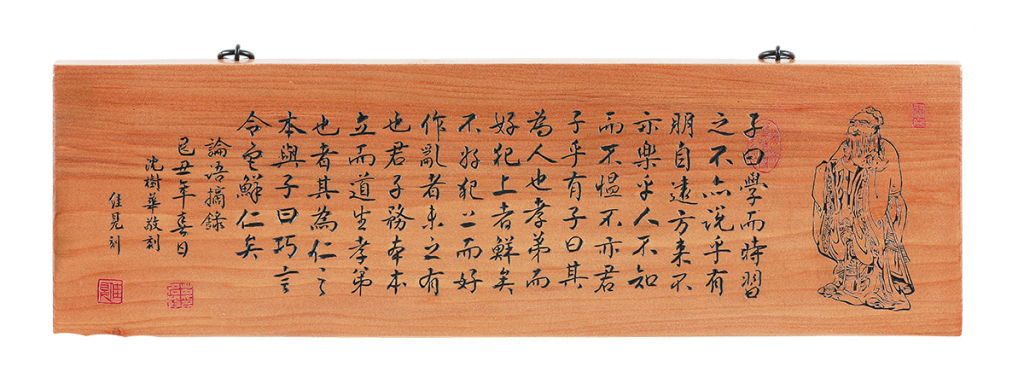 子曰學而時習
之不亦说乎有
朋自遠方来不
亦樂乎人不知
而不慍不亦君
子乎有子曰其
為人也孝弟而
好犯上者鮮矣
不好犯上而好
作亂者未之有
也君子務本本
立而道生孝弟
也者其為仁之
本與子曰巧言
令色鮮仁矣
論语摘錄
己丑年春日
沈樹華敬刻
佳見刻